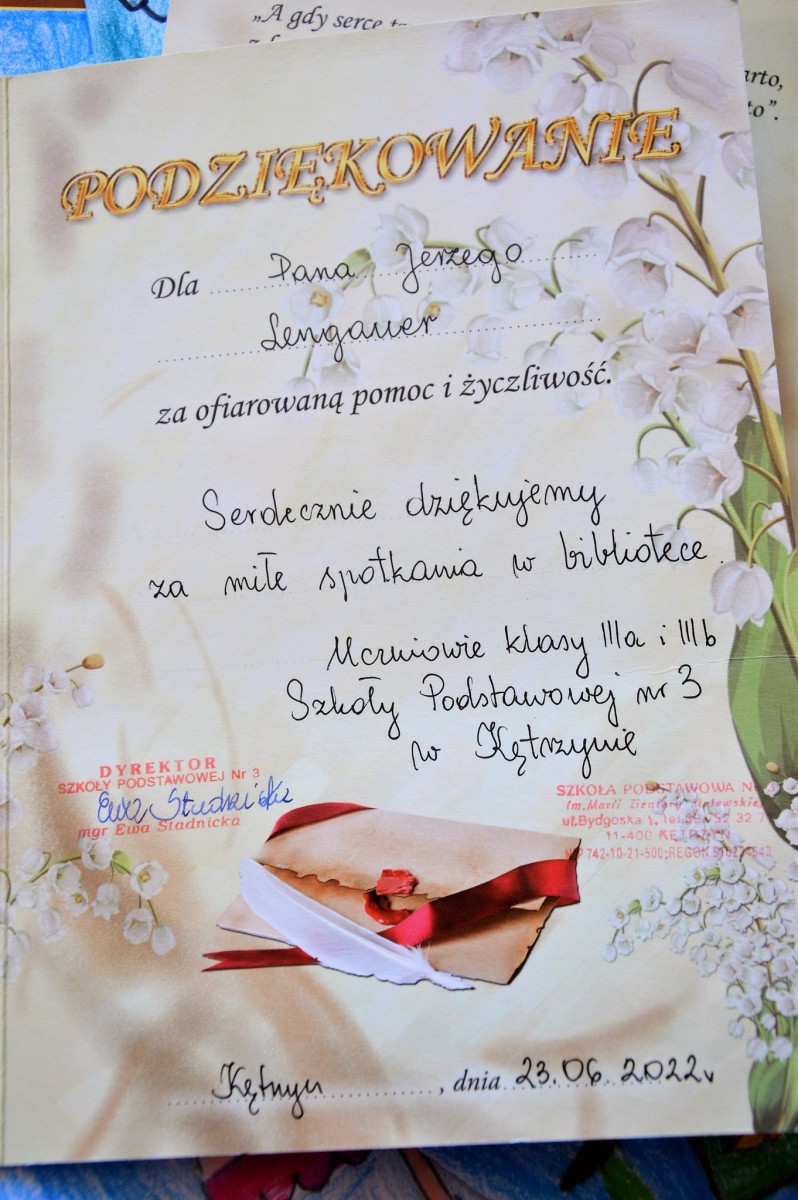 „A gdy serce
arto,
to”.
PODZIĘKOWANIE
Dla Pana Jerzego
Lengauer
za ofiarowaną pomoc i życzliwość.
Serdecznie dziękujemy
za miłe spotkania w bibliotece.
Uczniowie klasy IIIa i IIIb
Szkoły Podstawowej nr 3
w Kętrzynie
DYREKTOR
SZKOŁY PODSTAWOWEJ Nr 3
Ewa Stadnicka
mgr Ewa Stadnicka
SZKOŁA PODSTAWOWA N
im. Marii Zientary
ul. Bydgoska 1, tel. 89 752 32 7
11-400 KĘTRZYN
NIP 742-10-21-500; REGON
Kętrzyn, dnia 23.06.2022r